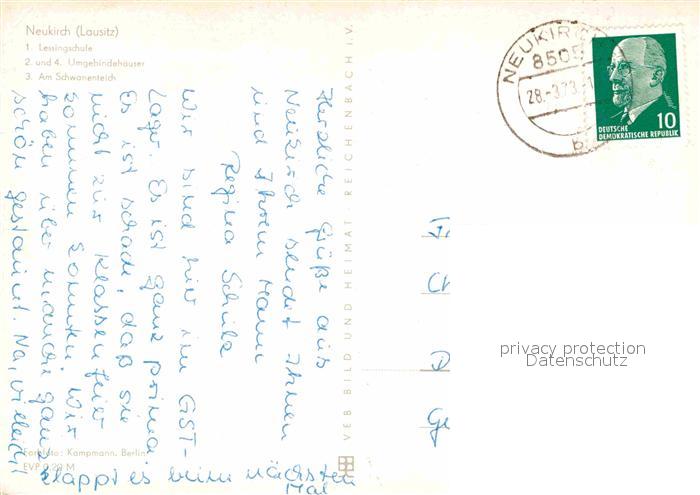 Neukirch (Lausitz)
1. Lessingschule
2. und 4. Umgebindehäuser
3. Am Schwanenteich
NEUKIRCH
8505
28.-3.73.-1
b
10
DEUTSCHE
DEMOKRATISCHE REPUBLIK
Herzliche Grüße aus
Neukirch sendet Ihnen
und Ihrem Mann
Regina Schulz
Wir sind hier im GST-
Lager. Es ist ganz prima
Es ist schade, daß sie
nicht zur Klassenfeier
kommen konnten. Wir
haben über manches ganz
schön gestaunt. Na, vielleicht
klappt es beim nächsten
Mal
VEB BILD UND HEIMAT REICHENBACH i.V.
D
Ge
privacy protection
Datenschutz
Farbfoto: Kampmann, Berlin
EVP 0,20 M